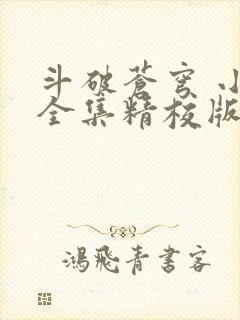 斗破苍穹
全集精校版
鸿飞青书客